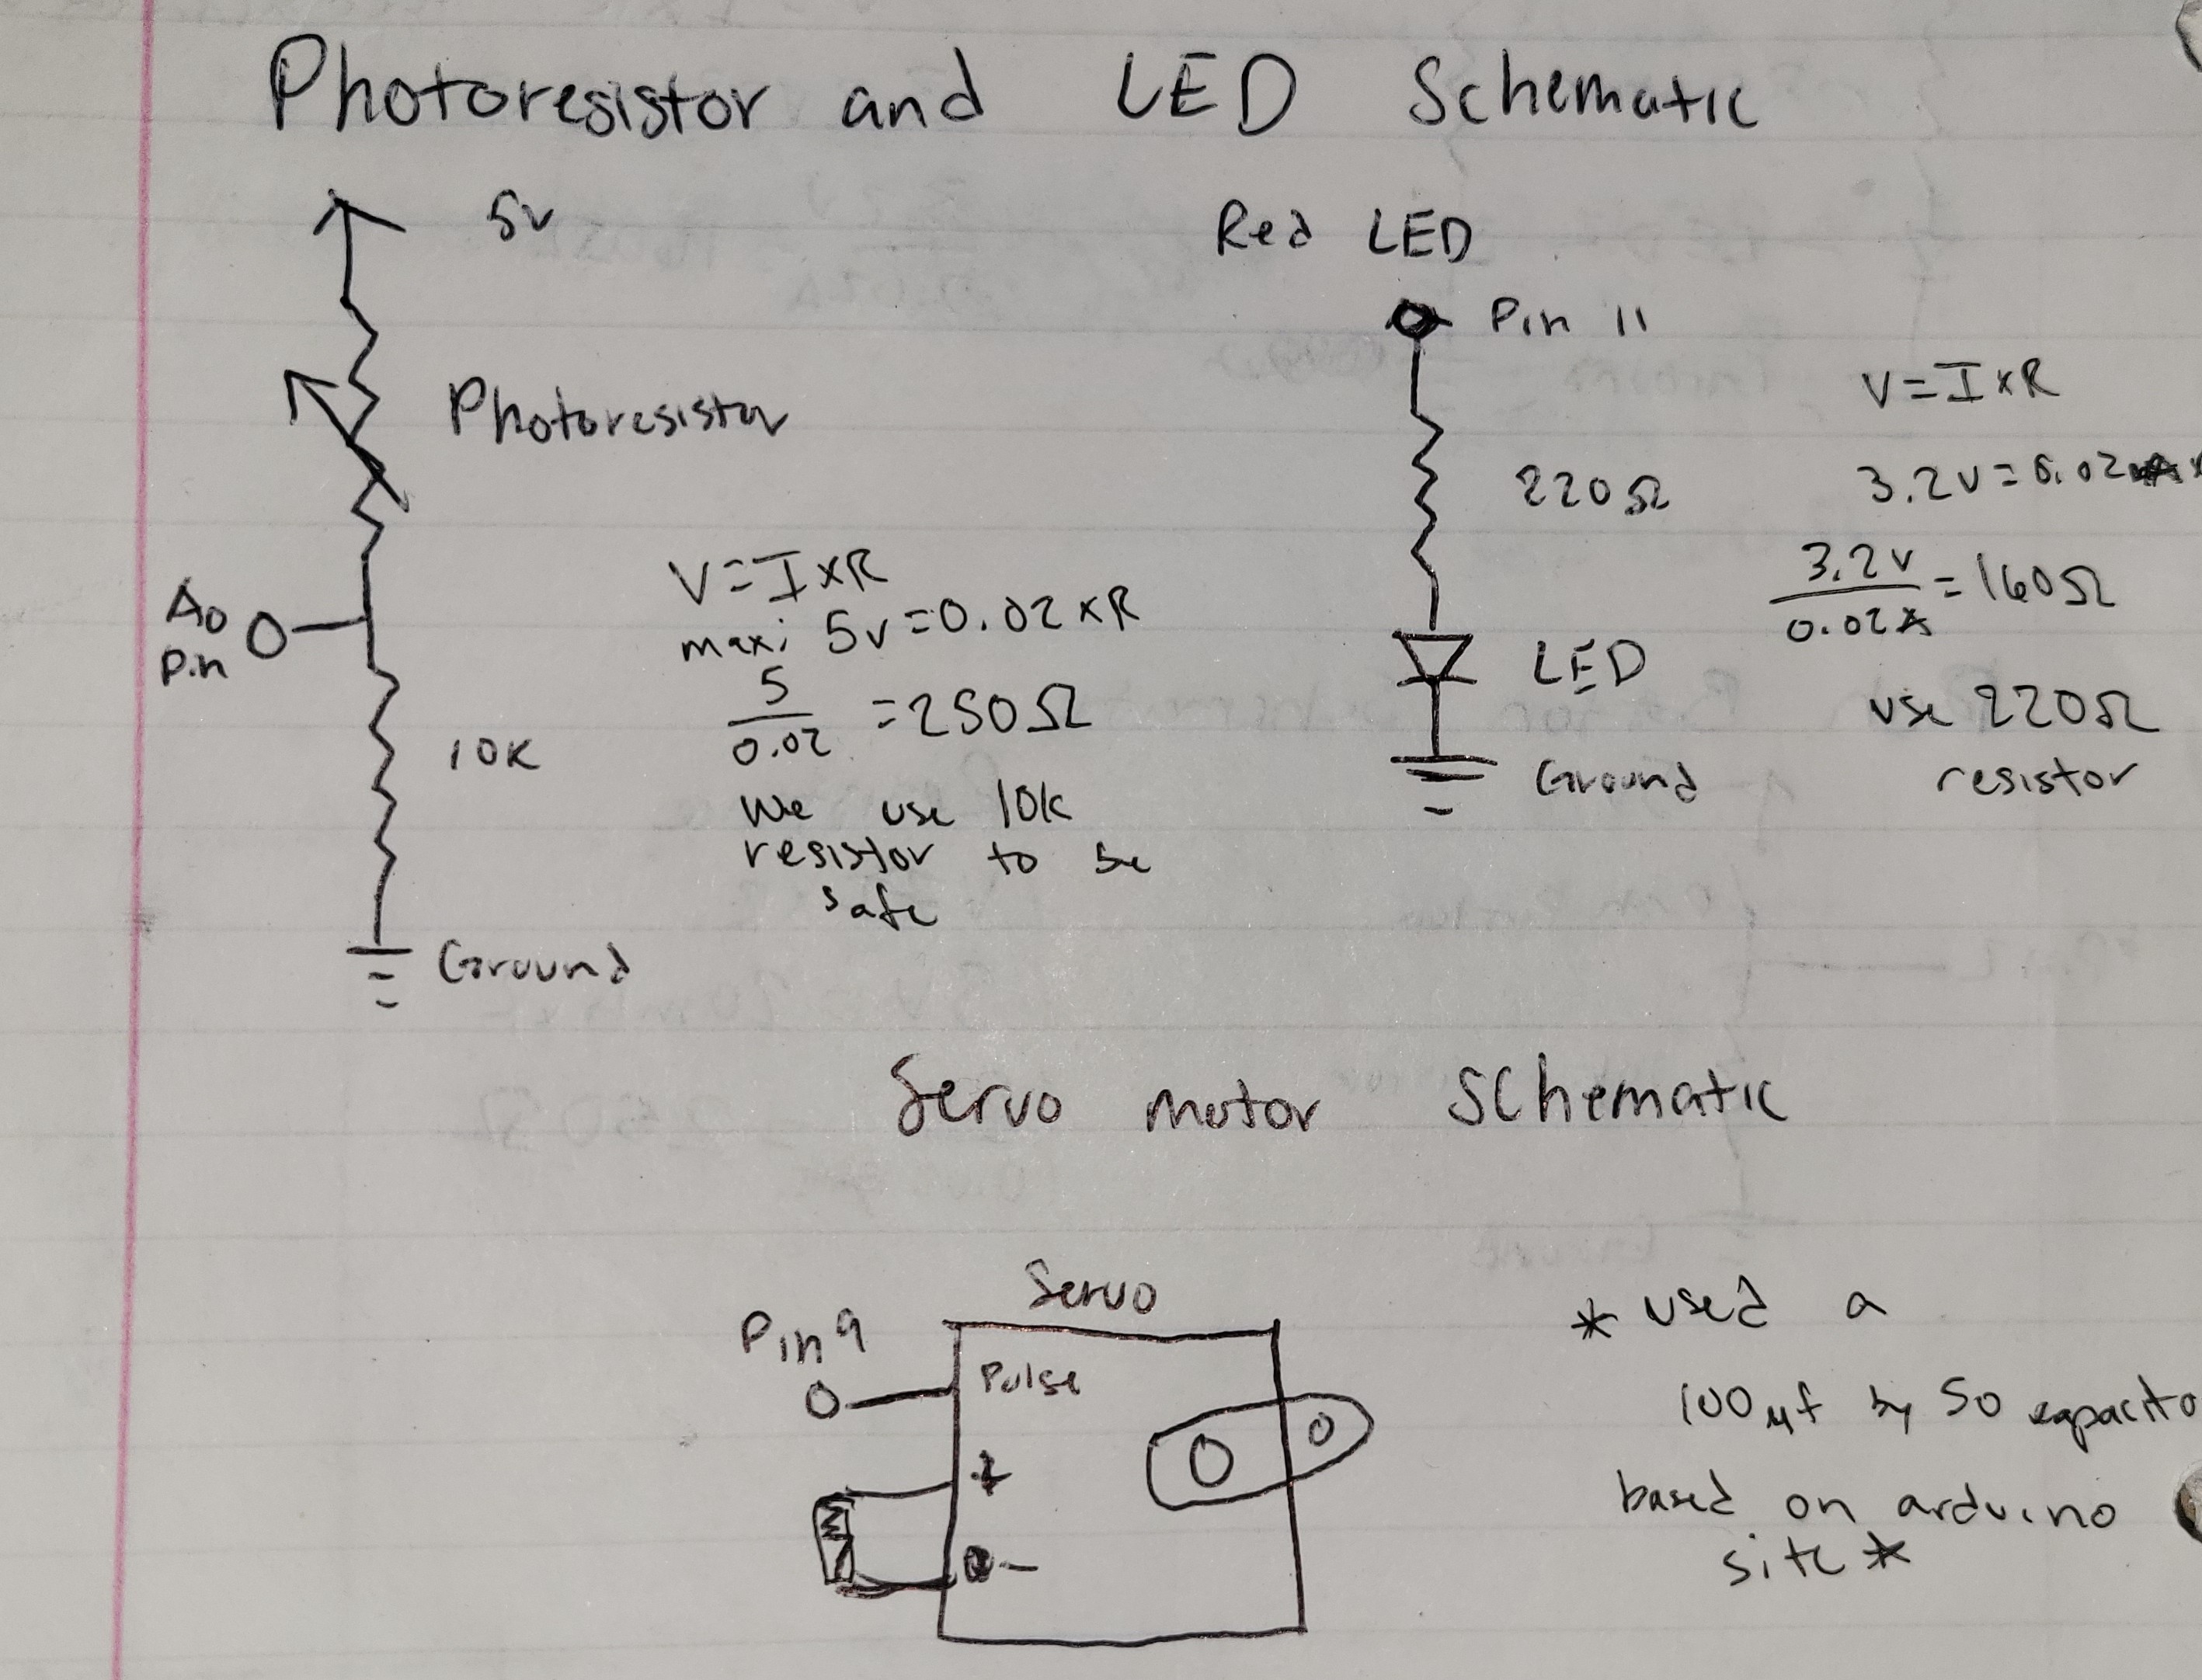 Photoresistor and LED Schematic
5v
Photoresistor
A0
Pin
10K
Ground
V=I×R
max: 5v=0.02×R
5
0.02 =250Ω
We use 10k
resistor to be
safe
Red LED
Pin 11
220Ω
LED
Ground
V=I×R
3.2v=0.02
3.2v
0.02A =160Ω
use 220Ω
resistor
Servo motor Schematic
Servo
Pin 9
Pulse
+
-
* used a
100µf by 50 capacito
based on arduino
site *